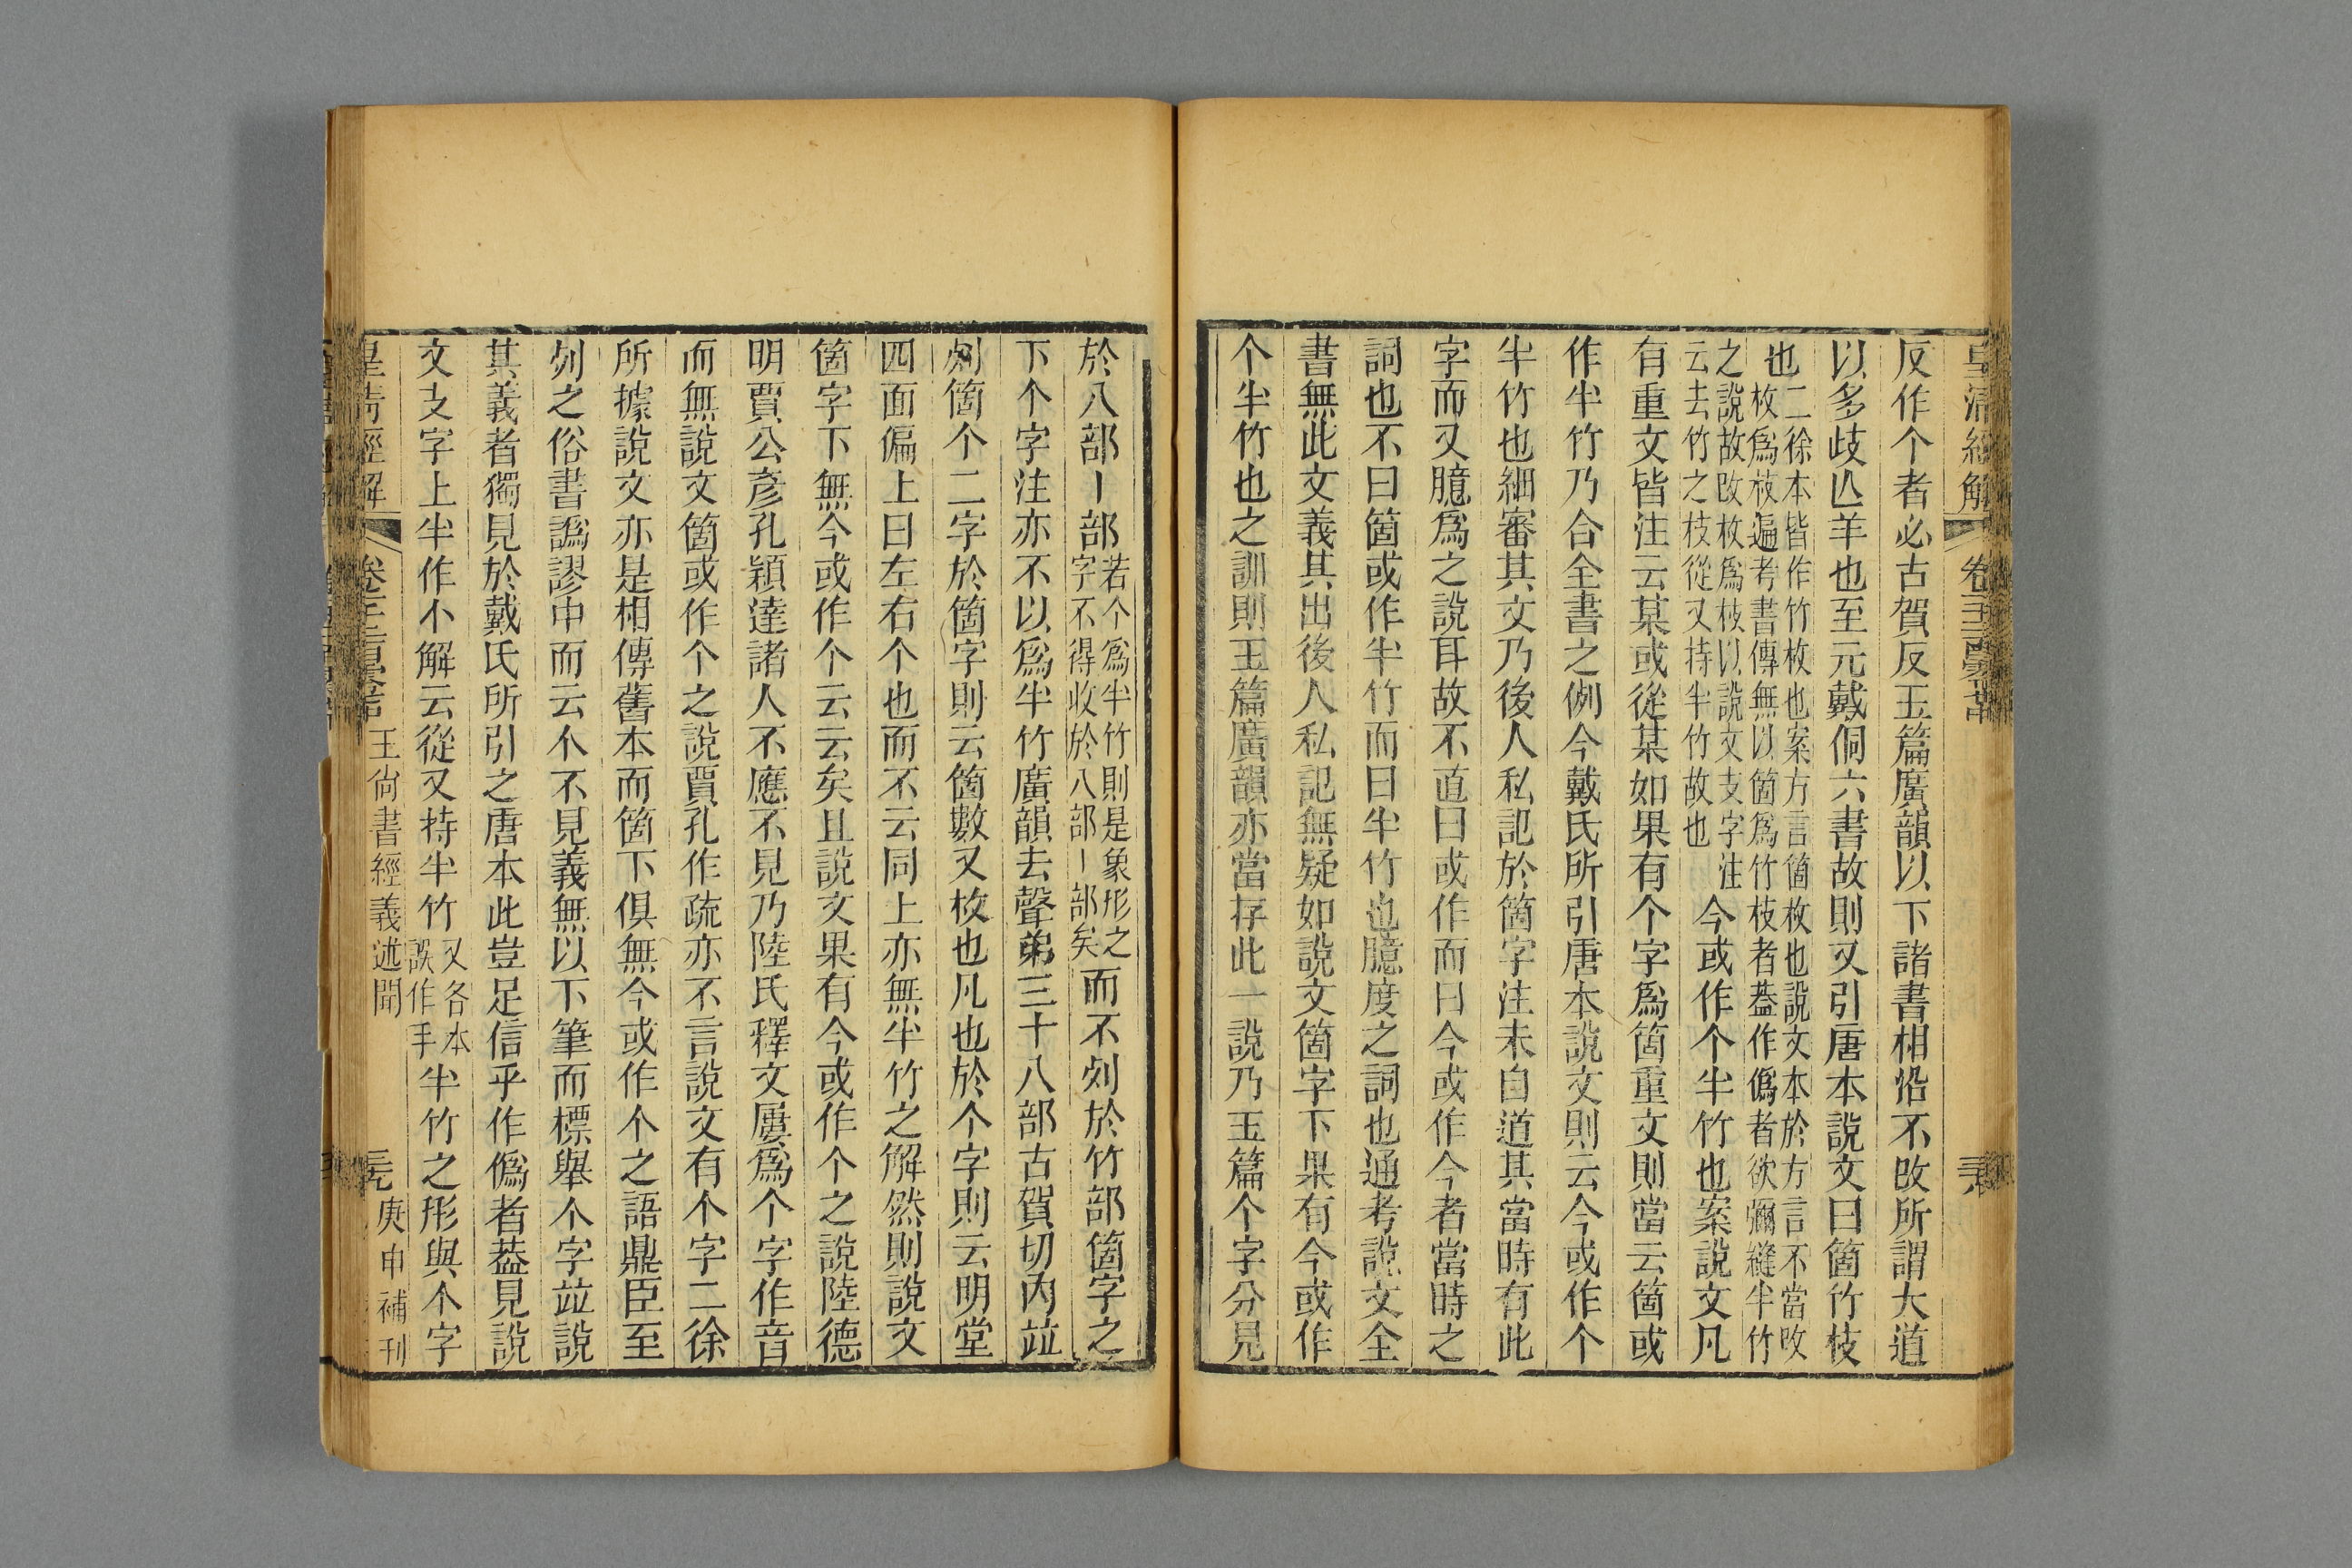 皇清經解
反作个者必古賀反玉篇廣韻以下諸書相沿不改所謂大道
以多歧亾羊也至元戴侗六書故則又引唐本說文曰箇竹枝
也二徐本皆作竹枚也案方言箇枚也說文本於方言不當改
枚爲枝遍考書傳無以箇爲竹枝者葢作僞者欲彌縫半竹
之說故改枚爲枝以說文支字注
云去竹之枝從又持半竹故也
今或作个半竹也案說文凡
有重文皆注云某或從某如果有个字爲箇重文則當云箇或
作半竹乃合全書之例今戴氏所引唐本說文則云今或作个
半竹也細審其文乃後人私記於箇字注未自道其當時有此
字而又臆爲之說耳故不直曰或作而曰今或作今者當時之
詞也不曰箇或作半竹而曰半竹也臆度之詞也通考說文全
書無此文義其出後人私記無疑如說文箇字下果有今或作
个半竹也之訓則玉篇廣韻亦當存此一說乃玉篇个字分見
於八部丨部
若个爲半竹則是象形之
字不得收於八部丨部矣
而不列於竹部箇字之
下个字注亦不以爲半竹廣韻去聲弟三十八部古賀切內竝
列箇个二字於箇字則云箇數又枚也凡也於个字則云明堂
四面偏上曰左右个也而不云同上亦無半竹之解然則說文
箇字下無今或作个云云矣且說文果有今或作个之說陸德
明賈公彥孔穎達諸人不應不見乃陸氏釋文屢爲个字作音
而無說文箇或作个之說賈孔作疏亦不言說文有个字二徐
所據說文亦是相傳舊本而箇下俱無今或作个之語鼎臣至
列之俗書譌謬中而云个不見義無以下筆而標舉个字竝說
其義者獨見於戴氏所引之唐本此豈足信乎作僞者葢見說
文支字上半作个解云從又持半竹
又各本
誤作手
半竹之形與个字
皇清經解
王尙書經義述聞
庚申補刊